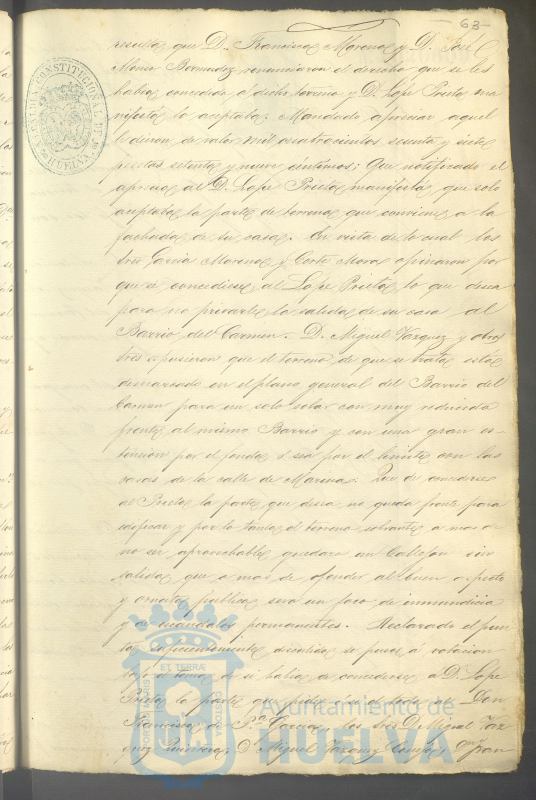 63
resulta que D. Francisco Moreno y D. José
Maria Bermudez renunciaron el derecho que se les
habia concedido a dicho terreno y D. Lope Prieto ma
nifestó lo aceptaba. Mandado apreciar aquel
le dieron de valor mil cuatrocientos setenta y siete
pesetas setenta y nueve céntimos; Que notificado el
aprecio al D. Lope Prieto manifestó que solo
aceptaba la parte de terreno que conviene a la
fachada de su casa. En vista de lo cual los
Sres Garcia Moreno y Corte Mora opinaron por
que se concediese al Lope Prieto lo que desea
para no privarle la salida de su casa al
Barrio del Carmen. D. Miguel Vazquez y otros
Sres espusieron que el terreno de que se trata está
demarcado en el plano general del Barrio del
Carmen para un solo solar con muy reducida
frente al mismo Barrio y con una gran es
tension por el fondo ó sea por el limite con las
casas de la calle de Marina. Que de concederse
al Prieto la parte que desea no queda frente para
edificar y por lo tanto el terreno sobrante a mas de
no ser aprovechable quedara un callejon sin
salida que a mas de ofender al buen aspecto
y ornato publico sera un foco de inmundicia
y de escandalos permanentes. Declarado el pun
to suficientemente discutido se puso á votacion
si habia de concederse a D. Lope
Prieto la parte que
Francisco de P. Garcia los Sres D. Miguel Vaz
quez D. Miguel Vazquez
AYUNTAMIENTO DE
HUELVA
CONSTITUCIONAL DE
HUELVA
ET TERRÆ
PORTUS MARIS
CUSTODIA
Ayuntamiento de
HUELVA